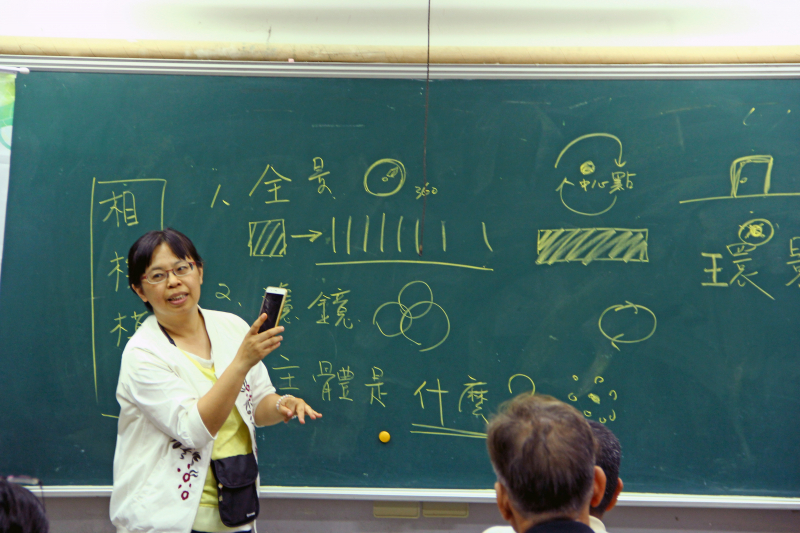 相
1、全景 360
中心點
環景
2、濾鏡
主體是什麼?